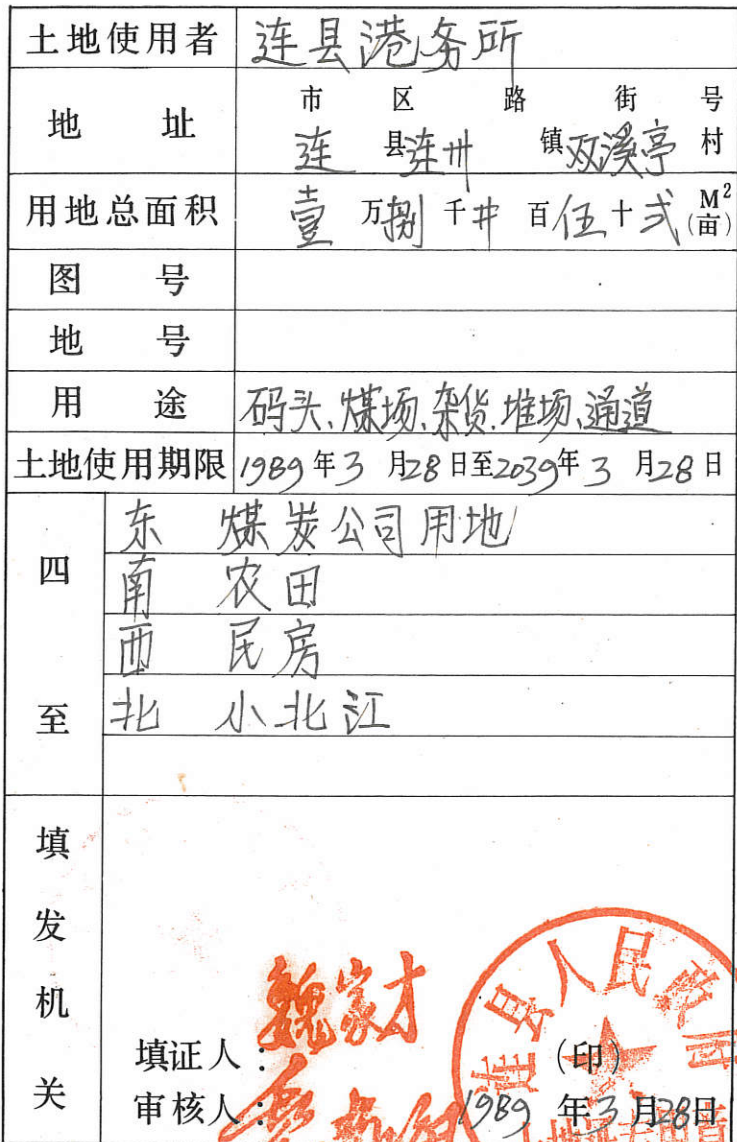 土地使用者 连县港务所
地 址 市 区 路 街 号
连 县 连州 镇 双溪亭 村
用地总面积 壹 万 捌 千 井 百 伍 十 弍 M²(亩)
图 号
地 号
用 途 码头、煤场、杂货、堆场、通道
土地使用期限 1989 年 3 月 28 日至 2039 年 3 月 28 日
四至
东 煤炭公司用地
南 农田
西 民房
北 小北江
填发机关
魏家才
填证人:
审核人:
连县人民政府
(印)
1989 年 3 月 28 日